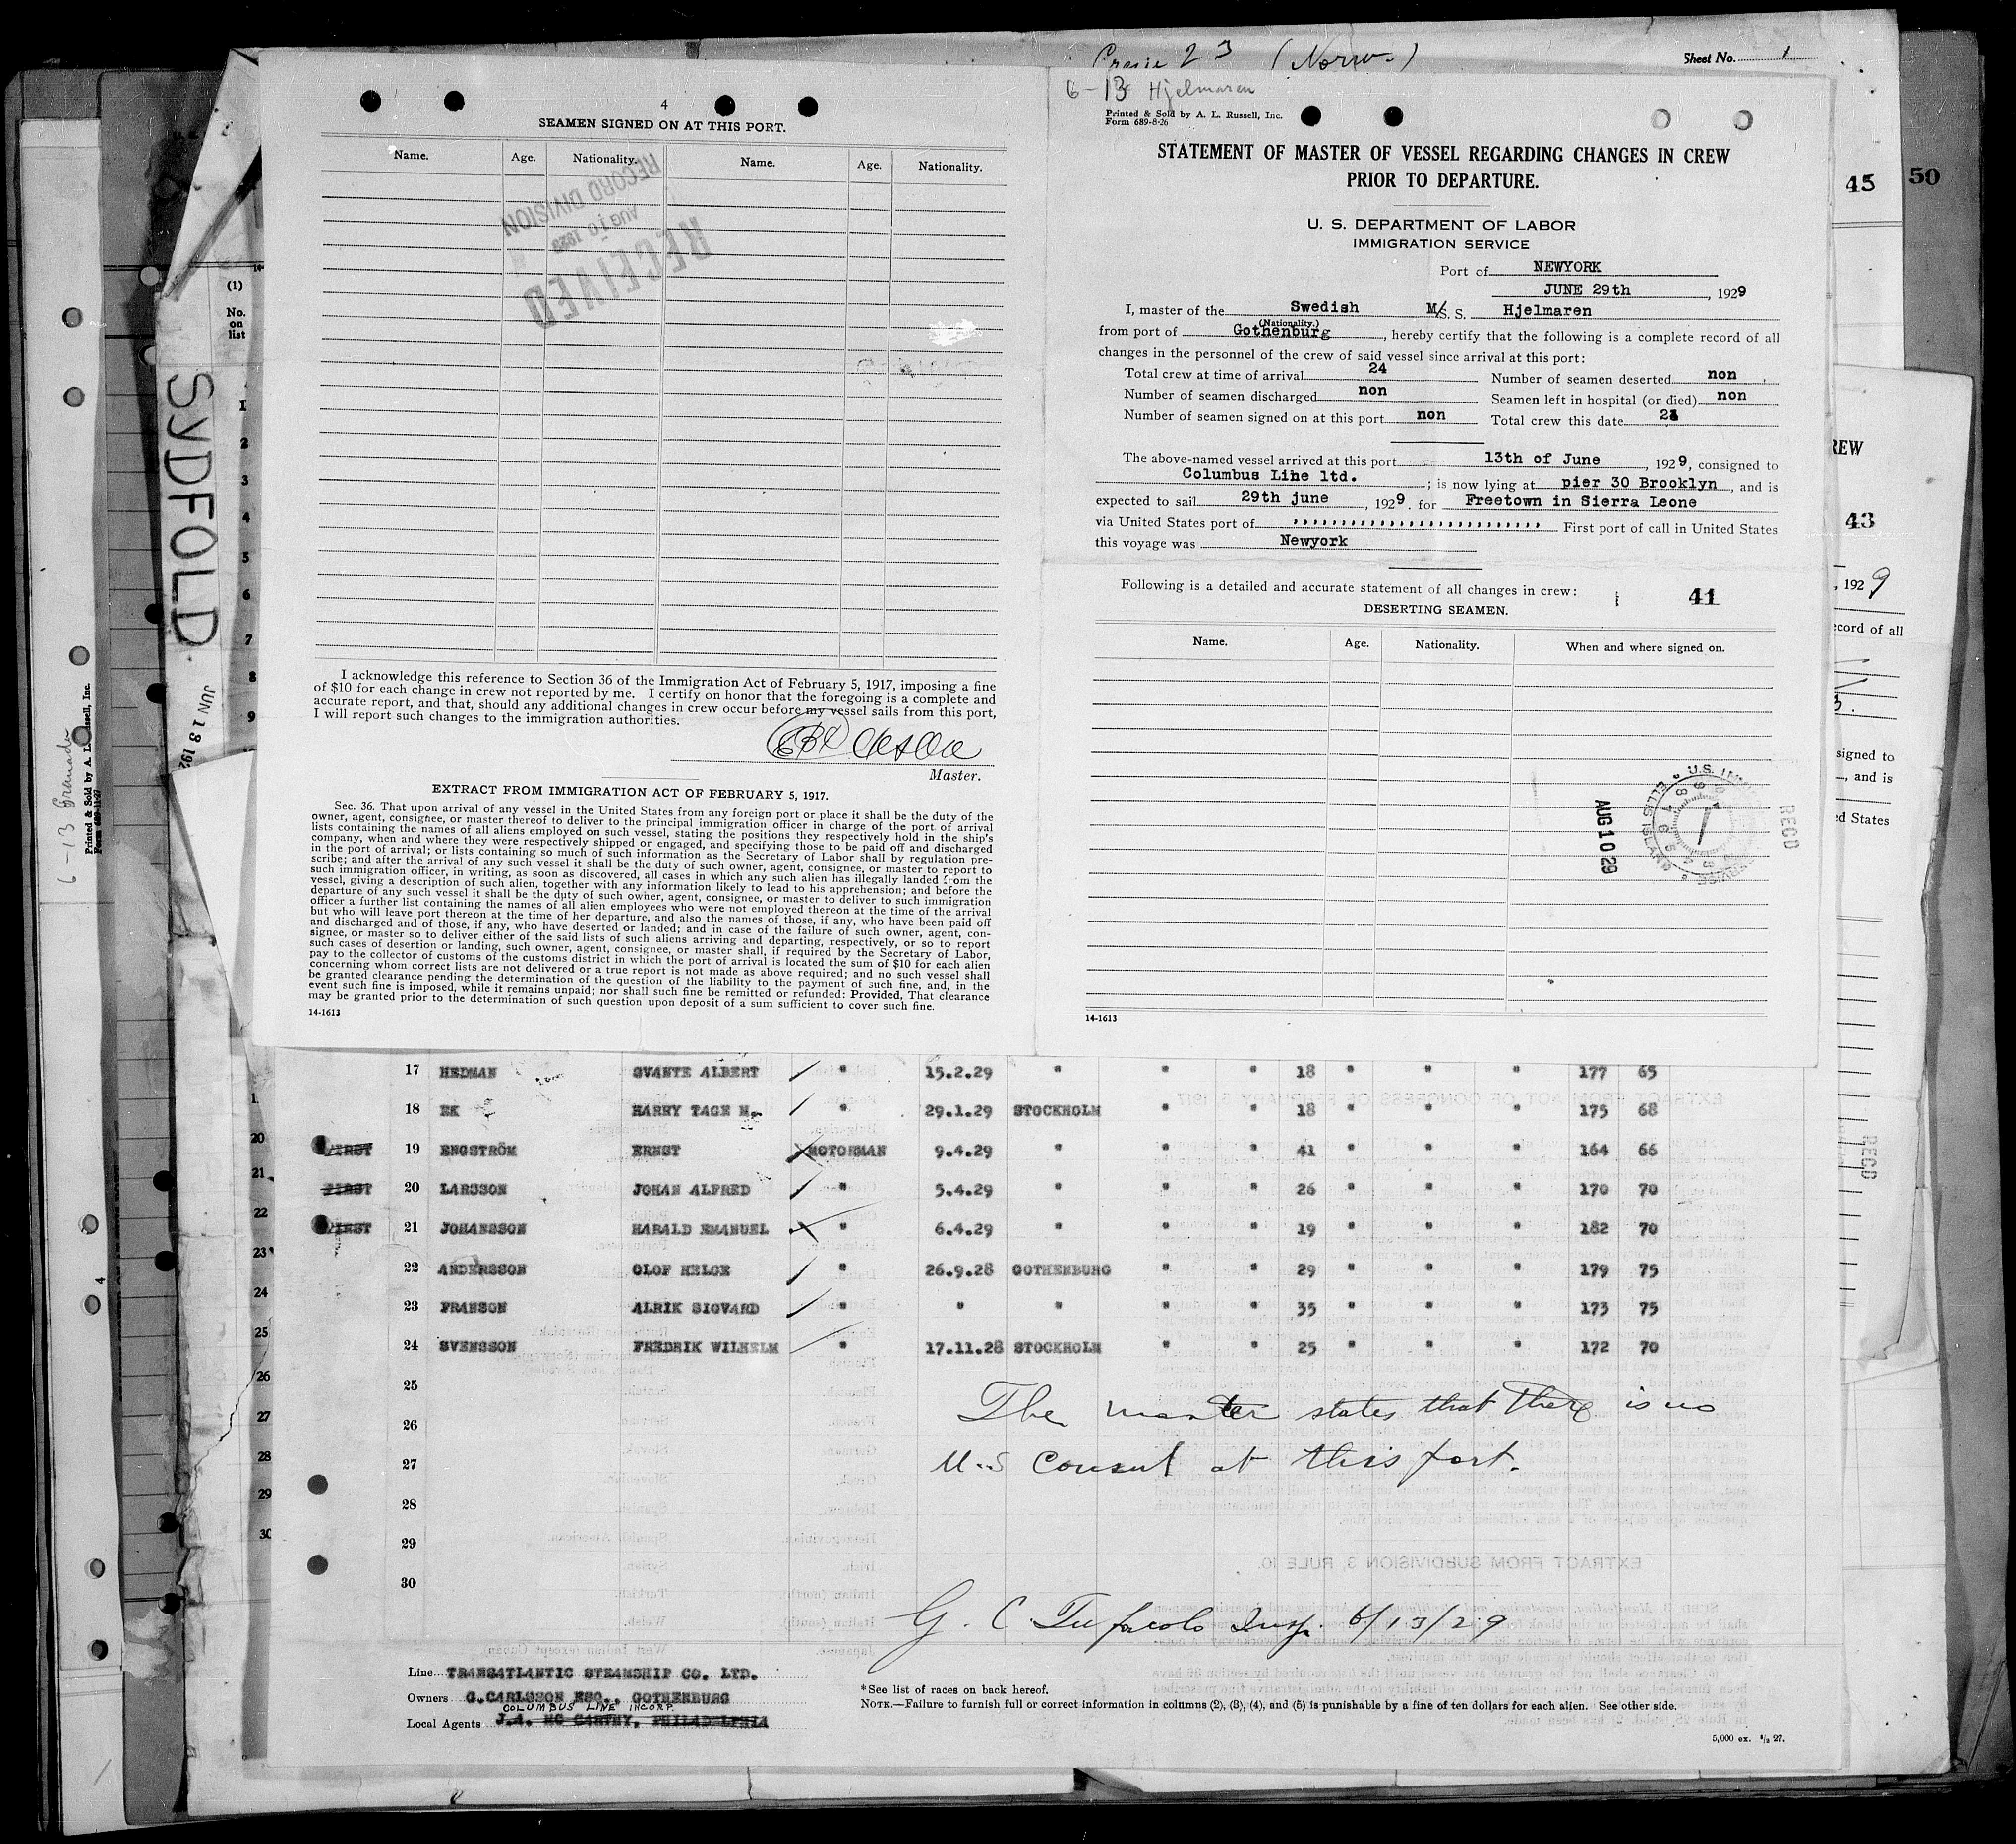 Sheet No. 1
23 (Norw.)
6-13 Hjelmaren
Printed & Sold by A. L. Russell, Inc.
Form 689-8-26
4
SEAMEN SIGNED ON AT THIS PORT.
Name. Age. Nationality. Name. Age. Nationality.
RECEIVED
AUG 10 1929
RECORD DIVISION
I acknowledge this reference to Section 36 of the Immigration Act of February 5, 1917, imposing a fine
of $10 for each change in crew not reported by me. I certify on honor that the foregoing is a complete and
accurate report, and that, should any additional changes in crew occur before my vessel sails from this port,
I will report such changes to the immigration authorities.
Master.
EXTRACT FROM IMMIGRATION ACT OF FEBRUARY 5, 1917.
Sec. 36. That upon arrival of any vessel in the United States from any foreign port or place it shall be the duty of the
owner, agent, consignee, or master thereof to deliver to the principal immigration officer in charge of the port of arrival
lists containing the names of all aliens employed on such vessel, stating the positions they respectively hold in the ship's
company, when and where they were respectively shipped or engaged, and specifying those to be paid off and discharged
in the port of arrival; or lists containing so much of such information as the Secretary of Labor shall by regulation pre-
scribe; and after the arrival of any such vessel it shall be the duty of such owner, agent, consignee, or master to report to
such immigration officer, in writing, as soon as discovered, all cases in which any such alien has illegally landed from the
vessel, giving a description of such alien, together with any information likely to lead to his apprehension; and before the
departure of any such vessel it shall be the duty of such owner, agent, consignee, or master to deliver to such immigration
officer a further list containing the names of all alien employees who were not employed thereon at the time of the arrival
but who will leave port thereon at the time of her departure, and also the names of those, if any, who have been paid off
and discharged and of those, if any, who have deserted or landed; and in case of the failure of such owner, agent, con-
signee, or master so to deliver either of the said lists of such aliens arriving and departing, respectively, or so to report
such cases of desertion or landing, such owner, agent, consignee, or master shall, if required by the Secretary of Labor,
pay to the collector of customs of the customs district in which the port of arrival is located the sum of $10 for each alien
concerning whom correct lists are not delivered or a true report is not made as above required; and no such vessel shall
be granted clearance pending the determination of the question of the liability to the payment of such fine, and, in the
event such fine is imposed, while it remains unpaid; nor shall such fine be remitted or refunded: Provided, That clearance
may be granted prior to the determination of such question upon deposit of a sum sufficient to cover such fine.
14-1613
STATEMENT OF MASTER OF VESSEL REGARDING CHANGES IN CREW
PRIOR TO DEPARTURE.
U. S. DEPARTMENT OF LABOR
IMMIGRATION SERVICE
Port of NEWYORK
JUNE 29th, 1929
I, master of the Swedish M/S. S. Hjelmaren
(Nationality.)
from port of Gothenburg, hereby certify that the following is a complete record of all
changes in the personnel of the crew of said vessel since arrival at this port:
Total crew at time of arrival 24 Number of seamen deserted non
Number of seamen discharged non Seamen left in hospital (or died) non
Number of seamen signed on at this port non Total crew this date 24
The above-named vessel arrived at this port 13th of June, 1929, consigned to
Columbus Line ltd.; is now lying at pier 30 Brooklyn, and is
expected to sail 29th june, 1929. for Freetown in Sierra Leone
via United States port of ,,,,,,,,,,,,,,,,,,,,,,,,,, First port of call in United States
this voyage was Newyork
Following is a detailed and accurate statement of all changes in crew: 41
DESERTING SEAMEN.
Name. Age. Nationality. When and where signed on.
RECD
AUG 10 29
U.S. ELLIS ISLAND
14-1613
17 HEDMAN SVANTE ALBERT " 15.2.29 " " " 18 " " " 177 65
18 EK HARRY TAGE M. " 29.1.29 STOCKHOLM " " 18 " " " 175 68
FIRST 19 ENGSTRÖM ERNST MOTORMAN 9.4.29 " " " 41 " " " 164 66
FIRST 20 LARSSON JOHAN ALFRED " 5.4.29 " " " 26 " " " 170 70
FIRST 21 JOHANSSON HARALD EMANUEL " 6.4.29 " " " 19 " " " 182 70
22 ANDERSSON OLOF HELGE " 26.9.28 GOTHENBURG " " 29 " " " 179 75
23 FRANSON ALRIK SIGVARD " " " " " 35 " " " 173 75
24 SVENSSON FREDRIK WILHELM " 17.11.28 STOCKHOLM " " 25 " " " 172 70
25
26
27
28
29
30
The master states that there is no
U.S Consul at this port.
G. C. Insp. 6/13/29
Line TRANSATLANTIC STEAMSHIP CO. LTD.
Owners G.CARLSSON ESQ., GOTHENBURG
COLUMBUS LINE INCORP.
Local Agents J.A. MC CARTHY, PHILADELPHIA
*See list of races on back hereof.
NOTE.—Failure to furnish full or correct information in columns (2), (3), (4), and (5) is punishable by a fine of ten dollars for each alien. See other side.
5,000 ex. 1/2 27.
(1)
No.
on
list
SYDFOLD
JUN 13 192
1
2
3
4
5
6
7
8
9
20
21
22
23
24
25
26
27
28
29
30
6-13 Granada
Printed & Sold by A. L. Russell, Inc.
4
45
50
REW
43
, 1929
ecord of all
signed to
, and is
ed States
RECD